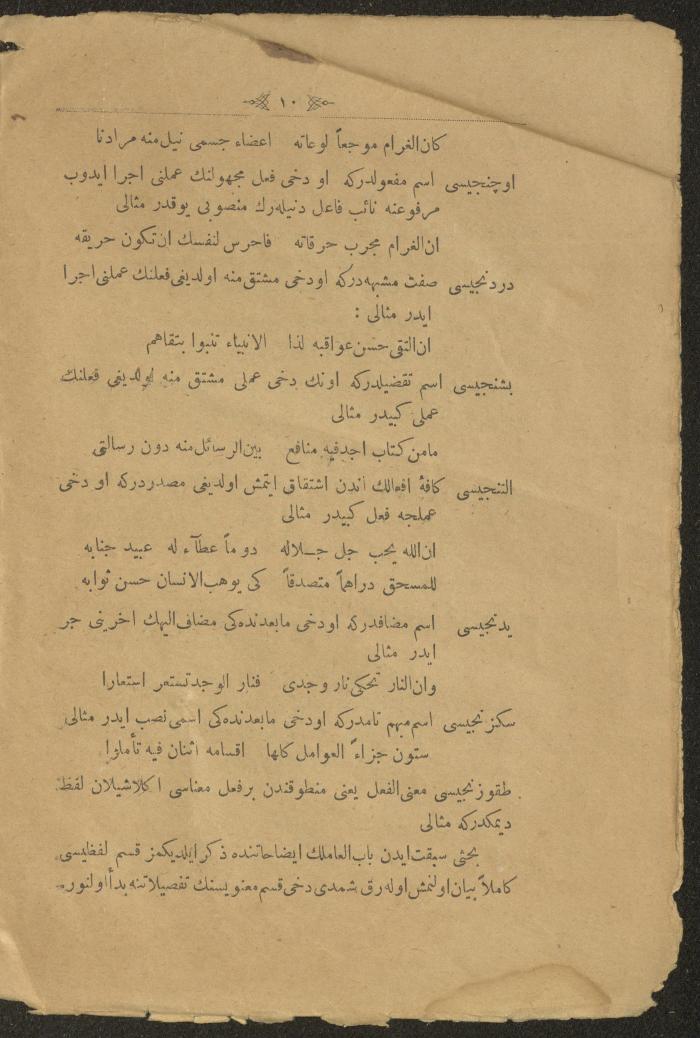 ١٠
كان الغرام موجعاً لوعاته اعضاء جسمى نيل منه مرادنا
اوچنجيسى اسم مفعولدركه او دخى فعل مجهولنك عملنى اجرا ايدوب
مرفوعنه نائب فاعل دنيله‌رك منصوبى يوقدر مثالى
ان الغرام مجرب حرقاته فاحرس لنفسك ان تكون حريقه
دردنجيسى صفت مشبهه‌دركه اودخى مشتق منه اولديغى فعلنك عملنى اجرا
ايدر مثالى :
ان التقى حسن عواقبه لذا الانبياء تنبوا بتقاهم
بشنجيسى اسم تفضيلدركه اونك دخى عملى مشتق منه اولديغى فعلنك
عملى كبيدر مثالى
مامن كتاب اجد فيه منافع بين الرسائل منه دون رسالتى
التنجيسى كافۀ افعالك اندن اشتقاق ايتمش اولديغى مصدردركه او دخى
عملجه فعل كبيدر مثالى
ان الله يحب جل جلاله دوماً عطآء له عبيد جنابه
للمسحق دراهماً متصدقاً كى يوهب الانسان حسن ثوابه
يدنجيسى اسم مضافدركه اودخى مابعدنده‌كى مضاف اليهك اخرينى جر
ايدر مثالى
وان النار تحكى نار وجدى فنار الوجد تستعر استعارا
سكزنجيسى اسم مبهم تامدركه اودخى مابعدنده‌كى اسمى نصب ايدر مثالى
ستون جزاءً العوامل كلها اقسامه اثنان فيه تأملوا
طقوزنجيسى معنى الفعل يعنى منطوقندن برفعل معناسى اكلاشيلان لفظ
ديمكدركه مثالى
بحثى سبقت ايدن باب العاملك ايضاحاتنده ذكر ايلديكمز قسم لفظيسى
كاملاً بيان اولنمش اوله‌رق شمدى دخى قسم معنويسنك تفصيلاتنه بدأ اولنور